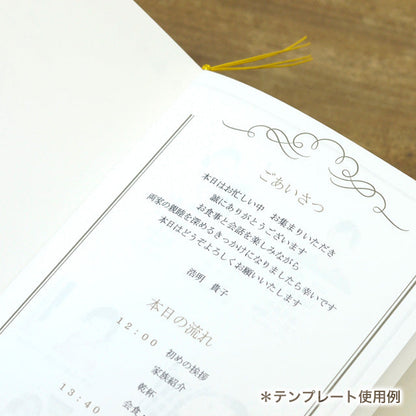 ごあいさつ
本日はお忙しい中　お集まりいただき
誠にありがとうございます
お食事と会話を楽しみながら
両家の親睦を深めるきっかけになりましたら幸いです
本日はどうぞよろしくお願いいたします
浩明　貴子
本日の流れ
12:00　初めの挨拶
家族紹介
乾杯
13:40　会食
＊テンプレート使用例